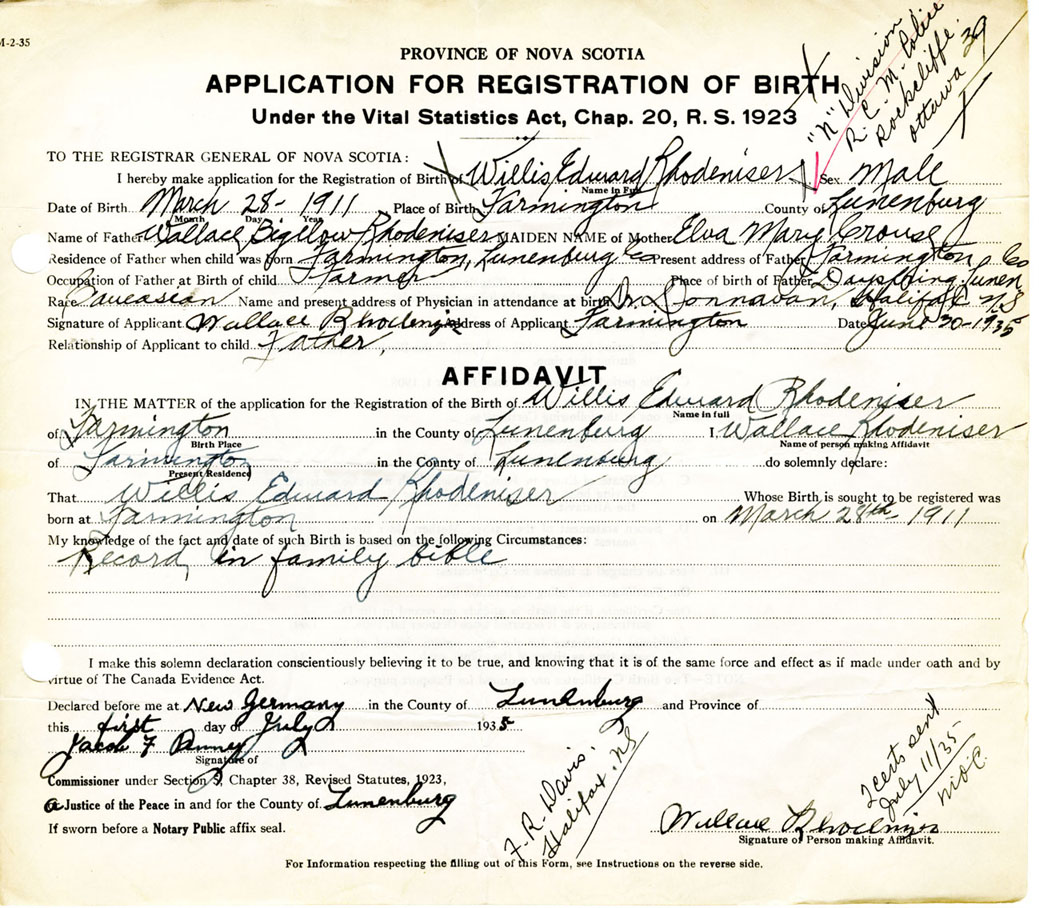 M-2-35
"N" Division
R. C. M. Police
Rockcliffe.
Ottawa 39
PROVINCE OF NOVA SCOTIA
APPLICATION FOR REGISTRATION OF BIRTH
Under the Vital Statistics Act, Chap. 20, R. S. 1923
TO THE REGISTRAR GENERAL OF NOVA SCOTIA:
I hereby make application for the Registration of Birth of Willis Edward Rhodeniser Sex Male
Name in Full
Date of Birth March 28 - 1911 Place of Birth Farmington County of Lunenburg
Month Day Year
Name of Father Wallace Bigelow Rhodeniser MAIDEN NAME of Mother Elva Mary Crouse
Residence of Father when child was born Farmington, Lunenburg Co Present address of Father Farmington
Occupation of Father at Birth of child Farmer Place of birth of Father Dayspring, Lunen Co
Race Caucasian Name and present address of Physician in attendance at birth Dr. Donnavan, Halifax NS
Signature of Applicant Wallace Rhodeniser Address of Applicant Farmington Date June 30-1935
Relationship of Applicant to child Father,
AFFIDAVIT
IN THE MATTER of the application for the Registration of the Birth of Willis Edward Rhodeniser
Name in full
of Farmington in the County of Lunenburg I, Wallace Rhodeniser
Birth Place Name of person making Affidavit
of Farmington in the County of Lunenburg do solemnly declare:
Present Residence
That Willis Edward Rhodeniser Whose Birth is sought to be registered was
born at Farmington on March 28th - 1911
My knowledge of the fact and date of such Birth is based on the following Circumstances:
Record, in family bible
I make this solemn declaration conscientiously believing it to be true, and knowing that it is of the same force and effect as if made under oath and by
virtue of The Canada Evidence Act.
Declared before me at New Germany in the County of Lunenburg and Province of
this first day of July 1935
Jacob F Penney
Signature of
Commissioner under Section 3, Chapter 38, Revised Statutes, 1923,
a Justice of the Peace in and for the County of Lunenburg
If sworn before a Notary Public affix seal.
F. R. Davis.
Halifax, NS
2 certs sent
July 11/35
Wallace Rhodeniser
Signature of Person making Affidavit.
For Information respecting the filling out of this Form, see Instructions on the reverse side.